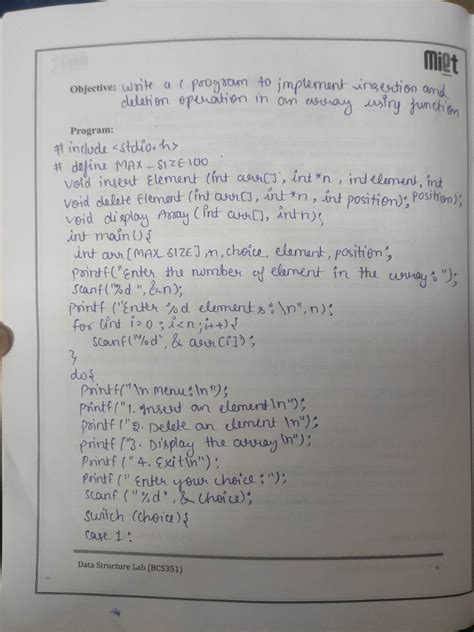 miet
Objective: Write a C program to implement insertion and
deletion operation in an array using function
Program:
# include <stdio.h>
# define MAX_SIZE 100
void insert Element (int arr[], int *n, int element, int
void delete Element (int arr[], int *n, int position); position);
void display Array (int arr[], int n);
int main() {
int arr [MAX_SIZE], n, choice, element, position;
printf("Enter the number of element in the array: ");
scanf("%d", &n);
printf ("Enter %d elements: \n", n);
for (int i=0 ; i<n; i++) {
scanf("%d", & arr[i]);
}
do{
printf("\n Menu: \n");
printf("1. Insert an element \n");
printf ("2. Delete an element \n");
printf ("3. Display the array \n");
printf ("4. Exit \n");
printf ("Enter your choice: ");
scanf ("%d", & choice);
switch (choice) {
case 1:
Data Structure Lab (BCS351)